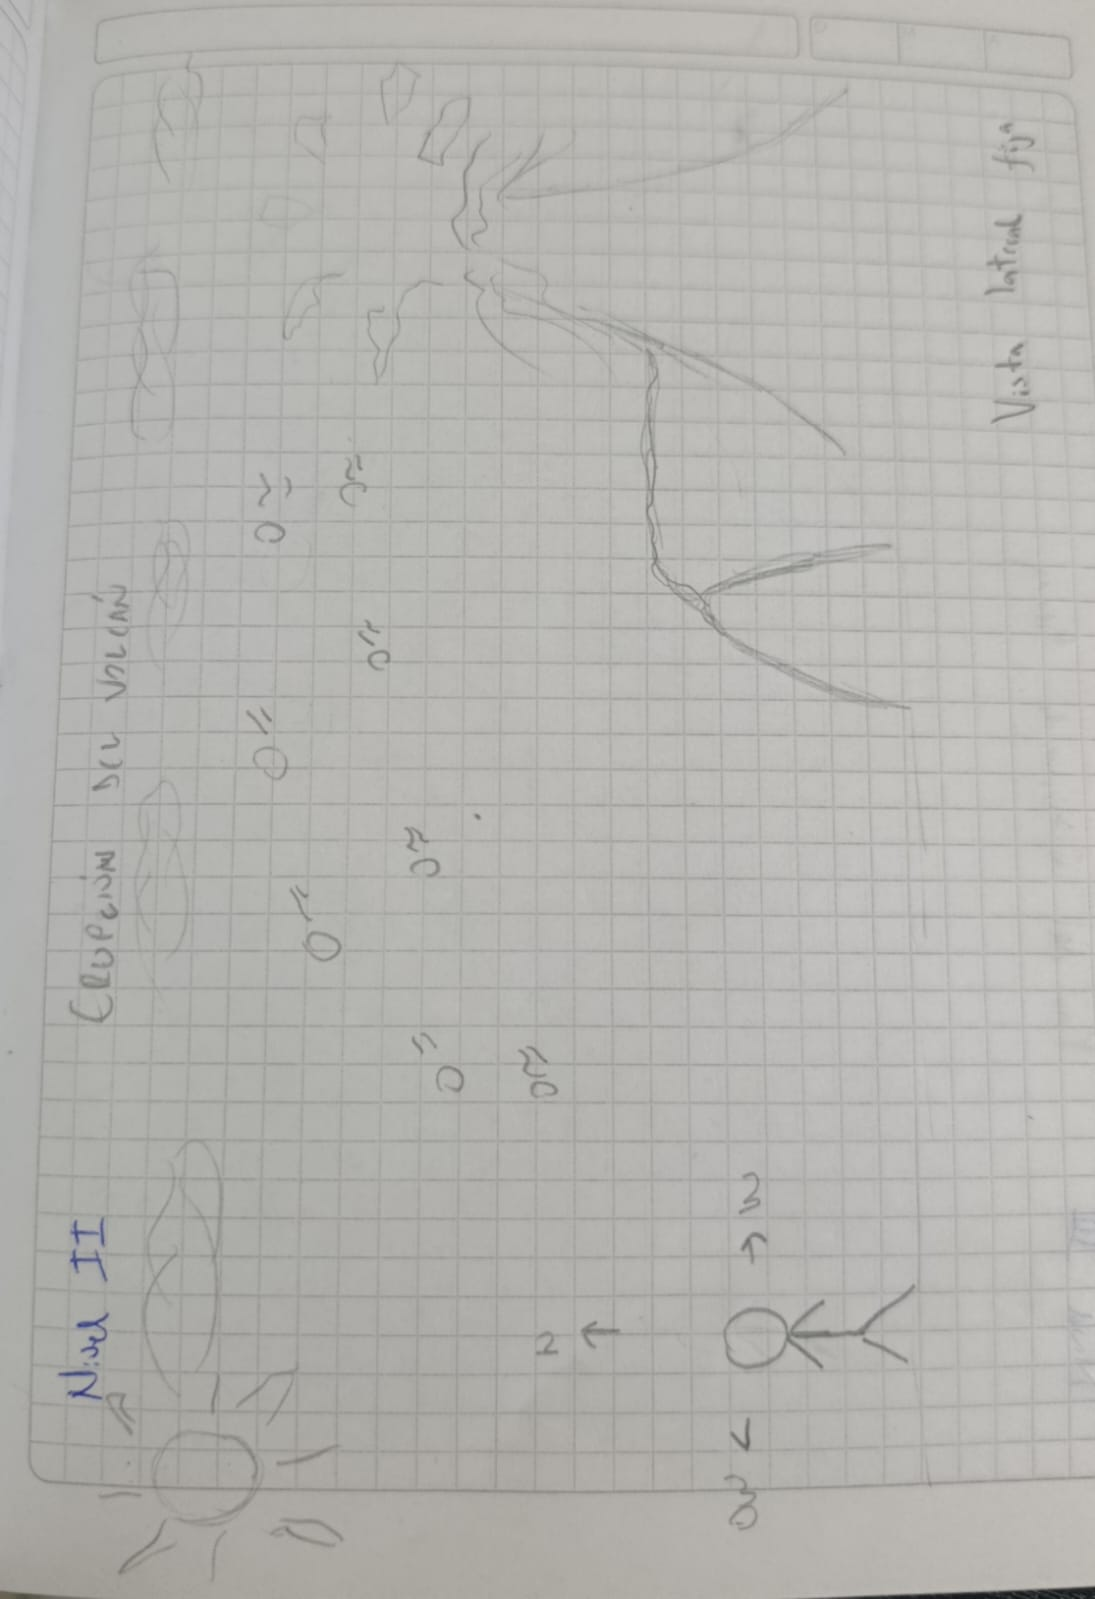 Nivel II
ERUPCIÓN DEL VOLCÁN
N
Vista lateral fija